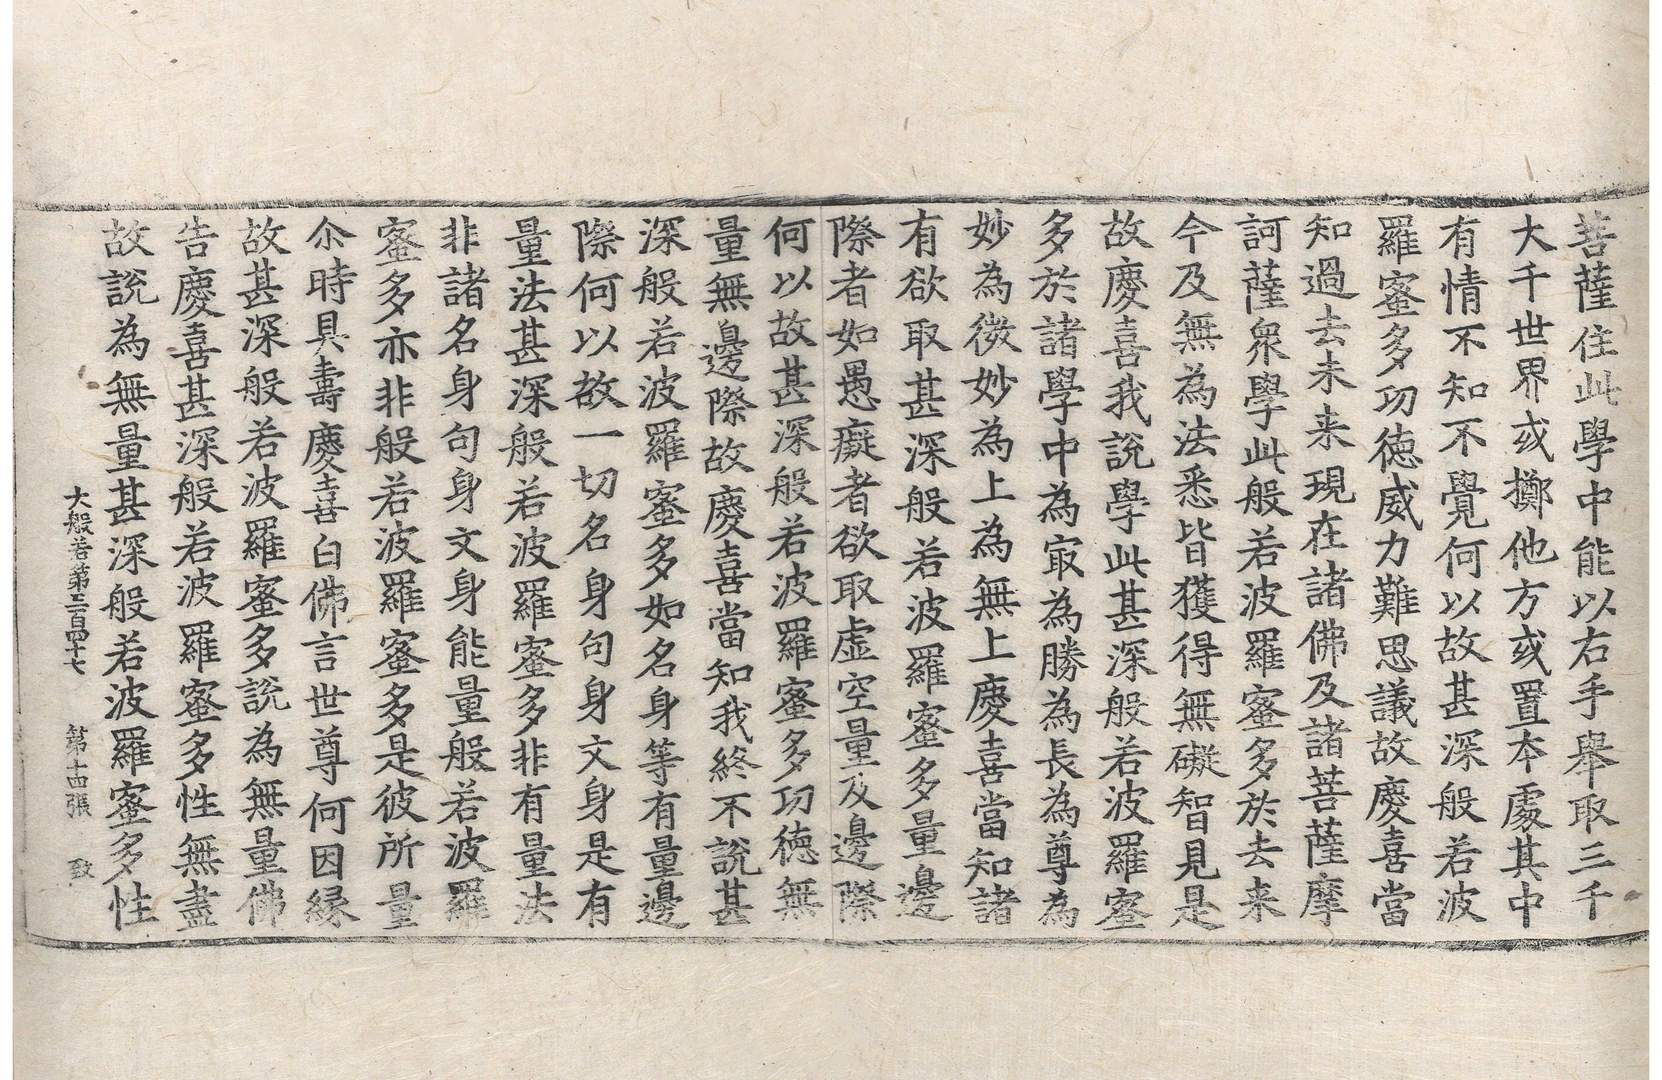 菩薩住此學中能以右手舉取三千
大千世界或擲他方或置本處其中
有情不知不覺何以故甚深般若波
羅蜜多功德威力難思議故慶喜當
知過去未来現在諸佛及諸菩薩摩
訶薩衆學此般若波羅蜜多於去来
今及無為法悉皆獲得無礙智見是
故慶喜我說學此甚深般若波羅蜜
多於諸學中為㝡為勝為長為尊為
妙為微妙為上為無上慶喜當知諸
有欲取甚深般若波羅蜜多量邊
際者如愚癡者欲取虛空量及邊際
何以故甚深般若波羅蜜多功德無
量無邊際故慶喜當知我終不說甚
深般若波羅蜜多如名身等有量邊
際何以故一切名身句身文身是有
量法甚深般若波羅蜜多非有量法
非諸名身句身文身能量般若波羅
蜜多亦非般若波羅蜜多是彼所量
尒時具壽慶喜白佛言世尊何因緣
故甚深般若波羅蜜多說為無量佛
告慶喜甚深般若波羅蜜多性無盡
故說為無量甚深般若波羅蜜多性
大般若第三百四十七 第十四張 致